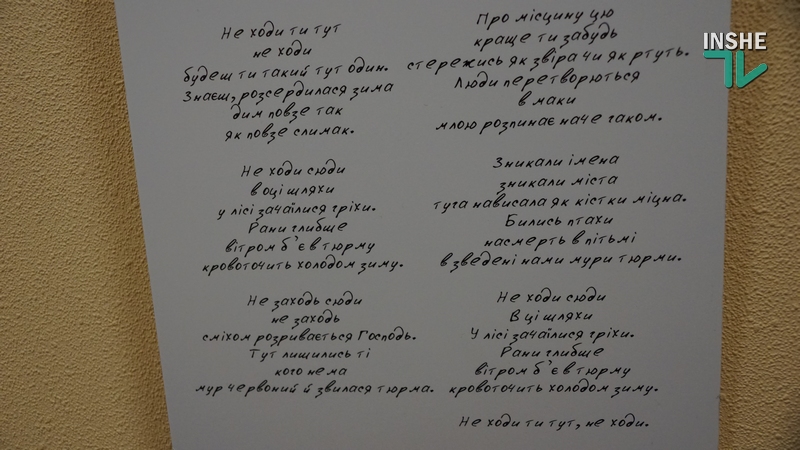 Не ходи ти тут
не ходи
будеш ти такий тут один.
Знаєш, розсердилася зима
дим повзе так
як повзе слимак.
Не ходи сюди
в оці шляхи
у лісі зачаїлися гріхи.
Рани глибше
вітром б'є в тюрму
кровоточить холодом зиму.
Не заходь сюди
не заходь
сміхом розривається Господь.
Тут лишились ті
кого нема
мур червоний й звилася тюрма.
Про місцину цю
краще ти забудь
стережись як звіра чи як ртуть.
Люди перетворються
в маки
млою розпинає наче гаком.
Зникали імена
зникали міста
туга нависала як кістки міцна.
Бились птахи
насмерть в пітьмі
в зведені нами мури тюрми.
Не ходи сюди
В ці шляхи
У лісі зачаїлися гріхи.
Рани глибше
вітром б'є в тюрму
кровоточить холодом зиму.
Не ходи ти тут, не ходи.
INSHE
TV